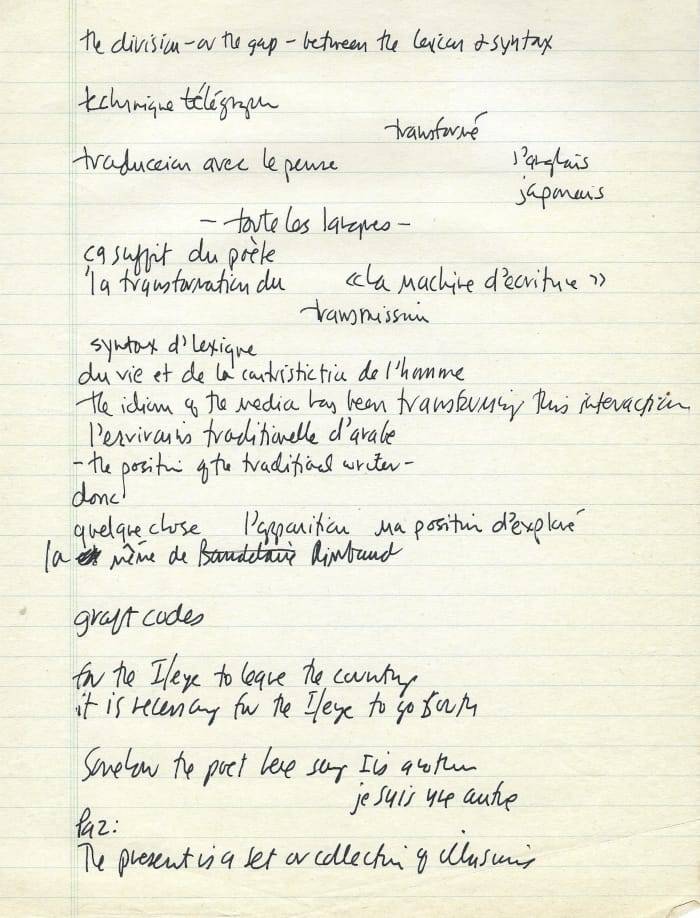 the division – or the gap – between the lexicon & syntax
technique télégraph
transformé
traduccion avec le pense l'anglais
japonais
– toute les langues –
ça suffit du poète
la transformation du «La machine d'écriture»
transmission
syntax d'lexique
du vie et de la de l'homme
the idiom of the media has been transforming this interaction
traditionelle d'arabe
– the position of the traditional writer –
donc
quelque chose l'apparition ma position d'exploré
la même de Baudelaire Rimbaud
graft codes
for the I/eye to leave the country
it is necessary for the I/eye to go forth
Somehow the poet here say I is another
je suis une autre
Paz:
The present is a set or collection of illusions